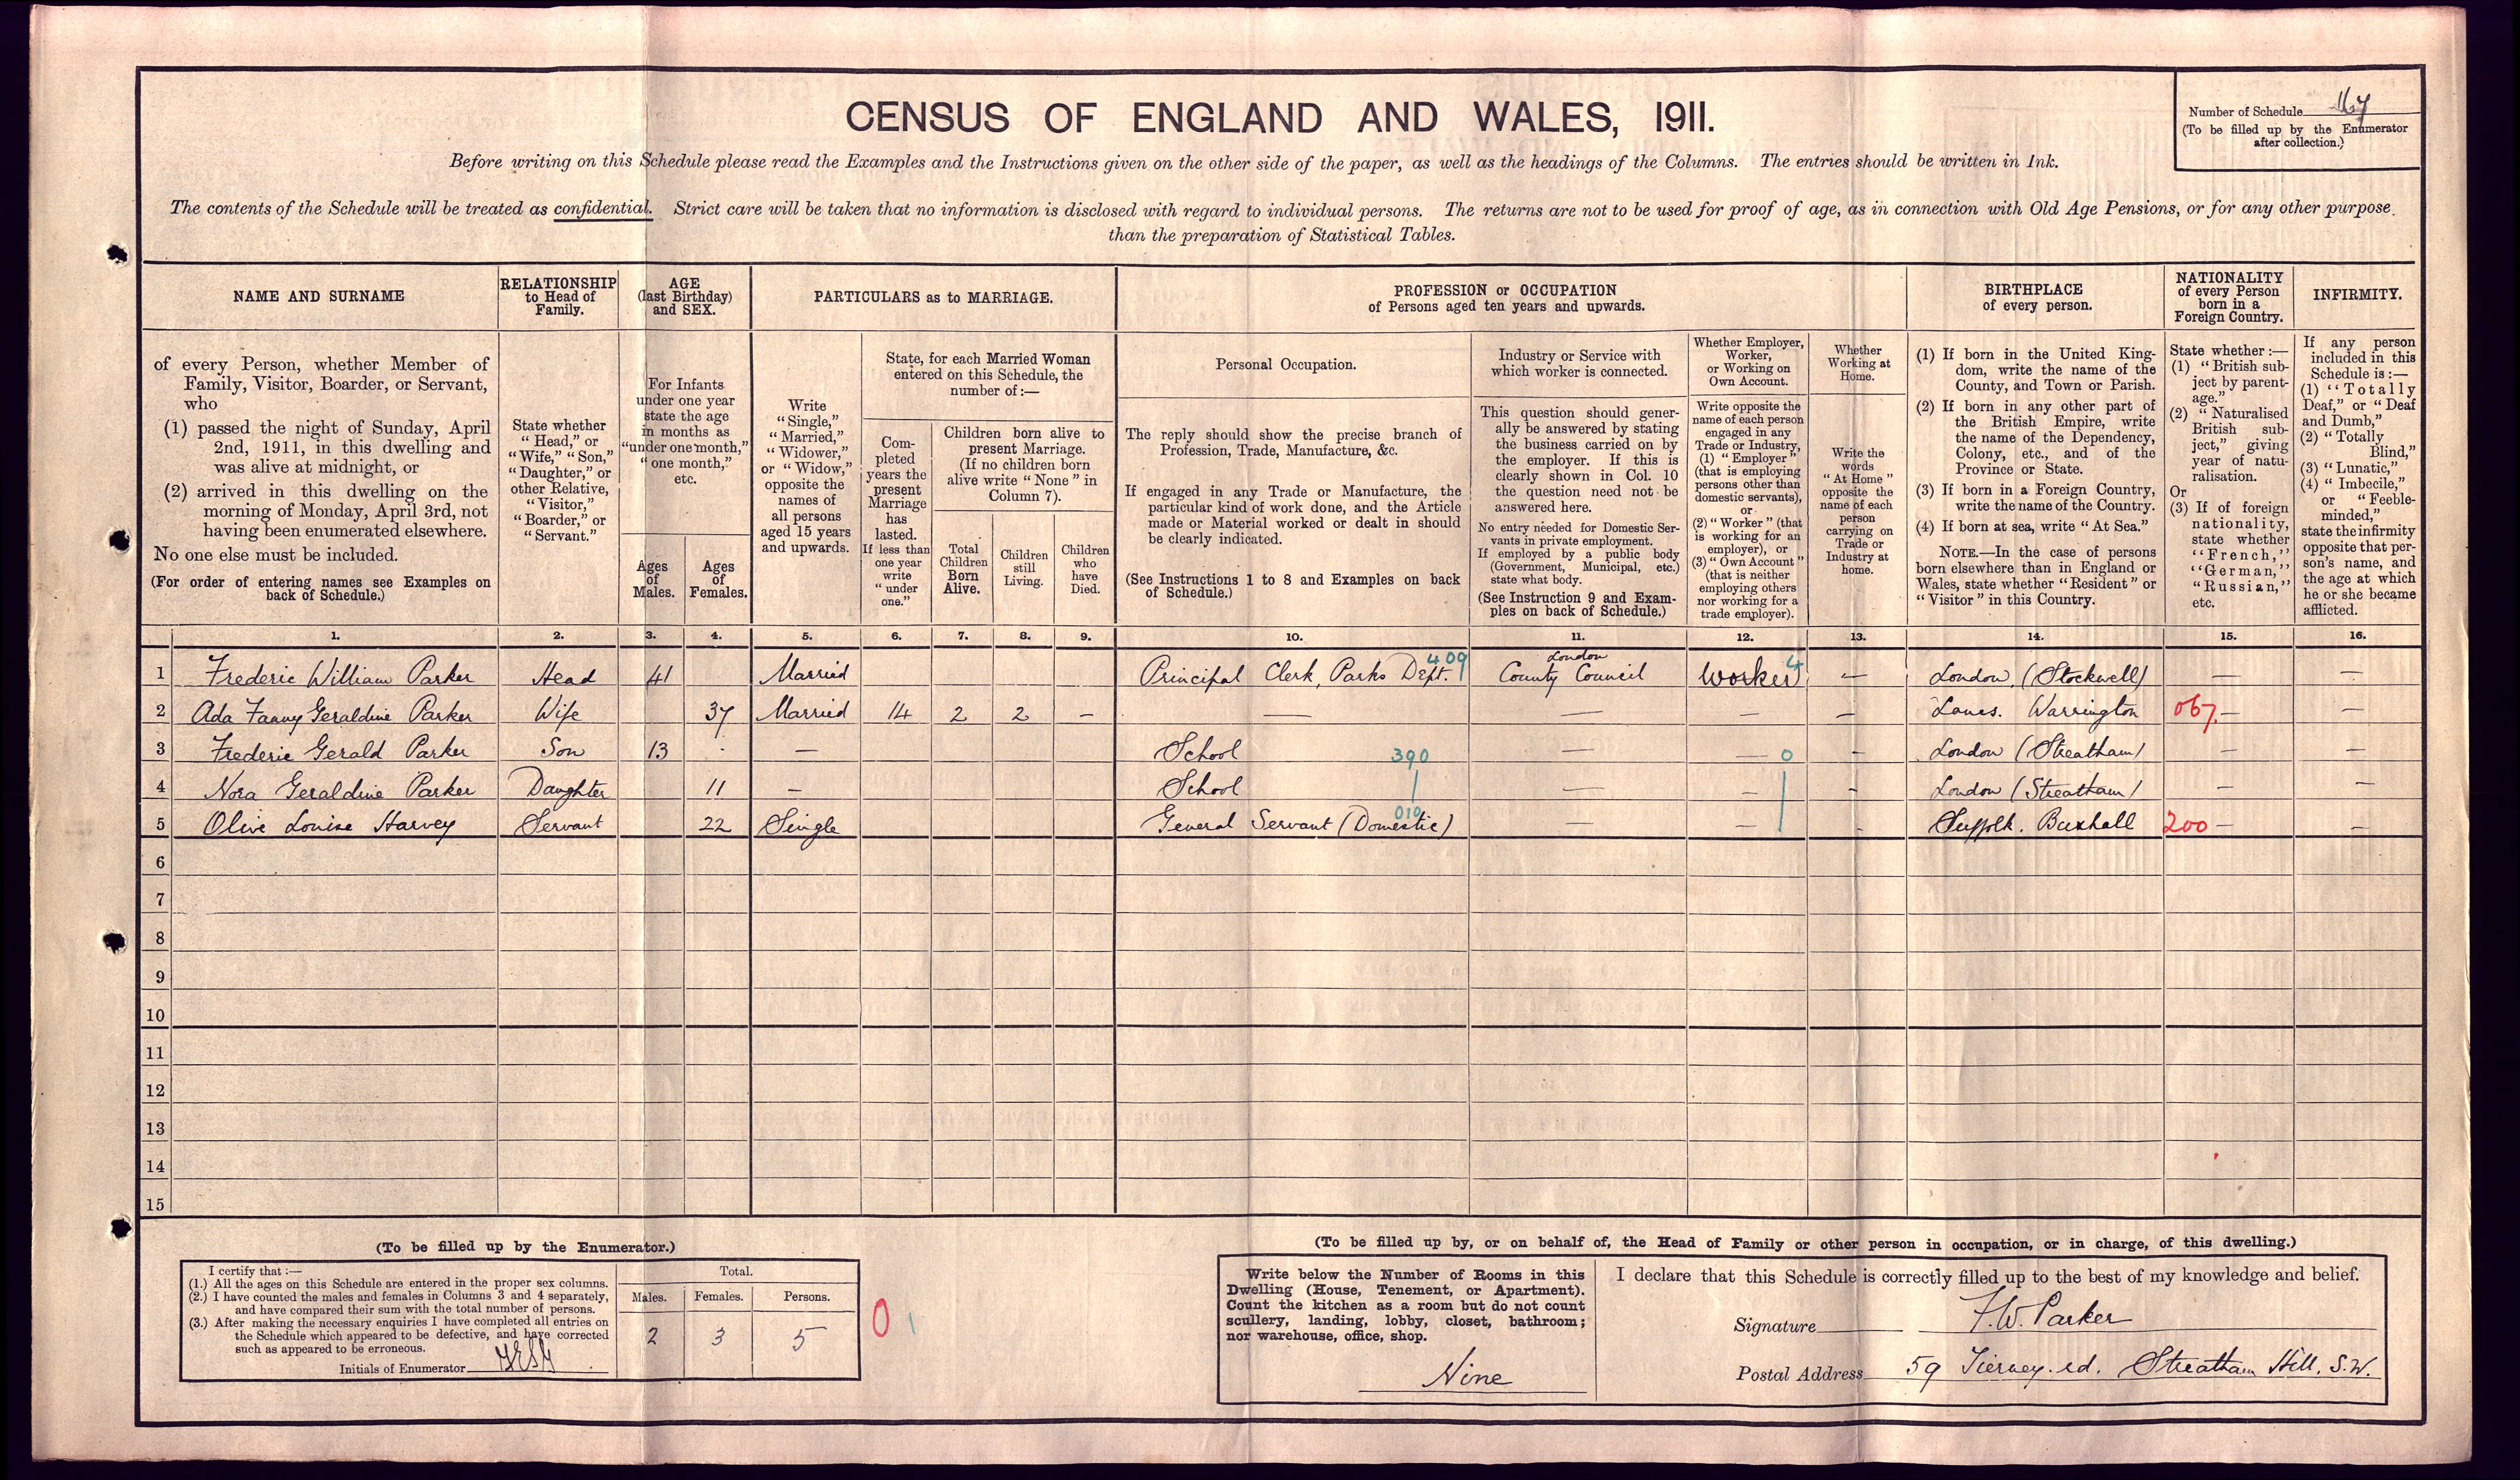 CENSUS OF ENGLAND AND WALES, 1911.
Number of Schedule 167
(To be filled up by the Enumerator
after collection.)
Before writing on this Schedule please read the Examples and the Instructions given on the other side of the paper, as well as the headings of the Columns. The entries should be written in Ink.
The contents of the Schedule will be treated as confidential. Strict care will be taken that no information is disclosed with regard to individual persons. The returns are not to be used for proof of age, as in connection with Old Age Pensions, or for any other purpose
than the preparation of Statistical Tables.
NAME AND SURNAME
of every Person, whether Member of
Family, Visitor, Boarder, or Servant,
who
(1) passed the night of Sunday, April
2nd, 1911, in this dwelling and
was alive at midnight, or
(2) arrived in this dwelling on the
morning of Monday, April 3rd, not
having been enumerated elsewhere.
No one else must be included.
(For order of entering names see Examples on
back of Schedule.)
RELATIONSHIP
to Head of
Family.
State whether
"Head," or
"Wife," "Son,"
"Daughter," or
other Relative,
"Visitor,"
"Boarder," or
"Servant."
AGE
(last Birthday)
and SEX.
For Infants
under one year
state the age
in months as
"under one month,"
"one month,"
etc.
Ages
of
Males.
Ages
of
Females.
PARTICULARS as to MARRIAGE.
Write
"Single,"
"Married,"
"Widower,"
or "Widow,"
opposite the
names of
all persons
aged 15 years
and upwards.
State, for each Married Woman
entered on this Schedule, the
number of:—
Com-
pleted
years the
present
Marriage
has
lasted.
If less than
one year
write
"under
one."
Children born alive to
present Marriage.
(If no children born
alive write "None" in
Column 7).
Total
Children
Born
Alive.
Children
still
Living.
Children
who
have
Died.
PROFESSION or OCCUPATION
of Persons aged ten years and upwards.
Personal Occupation.
The reply should show the precise branch of
Profession, Trade, Manufacture, &c.
If engaged in any Trade or Manufacture, the
particular kind of work done, and the Article
made or Material worked or dealt in should
be clearly indicated.
(See Instructions 1 to 8 and Examples on back
of Schedule.)
Industry or Service with
which worker is connected.
This question should gener-
ally be answered by stating
the business carried on by
the employer. If this is
clearly shown in Col. 10
the question need not be
answered here.
No entry needed for Domestic Ser-
vants in private employment.
If employed by a public body
(Government, Municipal, etc.)
state what body.
(See Instruction 9 and Exam-
ples on back of Schedule.)
Whether Employer,
Worker,
or Working on
Own Account.
Write opposite the
name of each person
engaged in any
Trade or Industry,
(1) "Employer"
(that is employing
persons other than
domestic servants),
or
(2) "Worker" (that
is working for an
employer), or
(3) "Own Account"
(that is neither
employing others
nor working for a
trade employer).
Whether
Working at
Home.
Write the
words
"At Home"
opposite the
name of each
person
carrying on
Trade or
Industry at
home.
BIRTHPLACE
of every person.
(1) If born in the United King-
dom, write the name of the
County, and Town or Parish.
(2) If born in any other part of
the British Empire, write
the name of the Dependency,
Colony, etc., and of the
Province or State.
(3) If born in a Foreign Country,
write the name of the Country.
(4) If born at sea, write "At Sea."
NOTE.—In the case of persons
born elsewhere than in England or
Wales, state whether "Resident" or
"Visitor" in this Country.
NATIONALITY
of every Person
born in a
Foreign Country.
State whether:—
(1) "British sub-
ject by parent-
age."
(2) "Naturalised
British sub-
ject," giving
year of natu-
ralisation.
Or
(3) If of foreign
nationality,
state whether
"French,"
"German,"
"Russian,"
etc.
INFIRMITY.
If any person
included in this
Schedule is:—
(1) "Totally
Deaf," or "Deaf
and Dumb,"
(2) "Totally
Blind,"
(3) "Lunatic,"
(4) "Imbecile,"
or "Feeble-
minded,"
state the infirmity
opposite that per-
son's name, and
the age at which
he or she became
afflicted.
1. 2. 3. 4. 5. 6. 7. 8. 9. 10. 11. 12. 13. 14. 15. 16.
1 Frederic William Parker Head 41 Married Principal Clerk, Parks Dept. 409 London County Council Worker 4 — London, (Stockwell) — —
2 Ada Fanny Geraldine Parker Wife 37 Married 14 2 2 – — — — — Lancs. Warrington 067. — —
3 Frederic Gerald Parker Son 13 — School 390 — — 0 – London (Streatham) — —
4 Nora Geraldine Parker Daughter 11 — School — — – London (Streatham) — —
5 Olive Louise Harvey Servant 22 Single General Servant (Domestic) 010 — — – Suffolk. Buxhall 200 — —
6
7
8
9
10
11
12
13
14
15
(To be filled up by the Enumerator.)
I certify that:—
(1.) All the ages on this Schedule are entered in the proper sex columns.
(2.) I have counted the males and females in Columns 3 and 4 separately,
and have compared their sum with the total number of persons.
(3.) After making the necessary enquiries I have completed all entries on
the Schedule which appeared to be defective, and have corrected
such as appeared to be erroneous.
Initials of Enumerator
Total.
Males. Females. Persons.
2 3 5
0 1
(To be filled up by, or on behalf of, the Head of Family or other person in occupation, or in charge, of this dwelling.)
Write below the Number of Rooms in this
Dwelling (House, Tenement, or Apartment).
Count the kitchen as a room but do not count
scullery, landing, lobby, closet, bathroom;
nor warehouse, office, shop.
Nine
I declare that this Schedule is correctly filled up to the best of my knowledge and belief.
Signature F. W. Parker
Postal Address 59 Tierney rd. Streatham Hill, S.W.